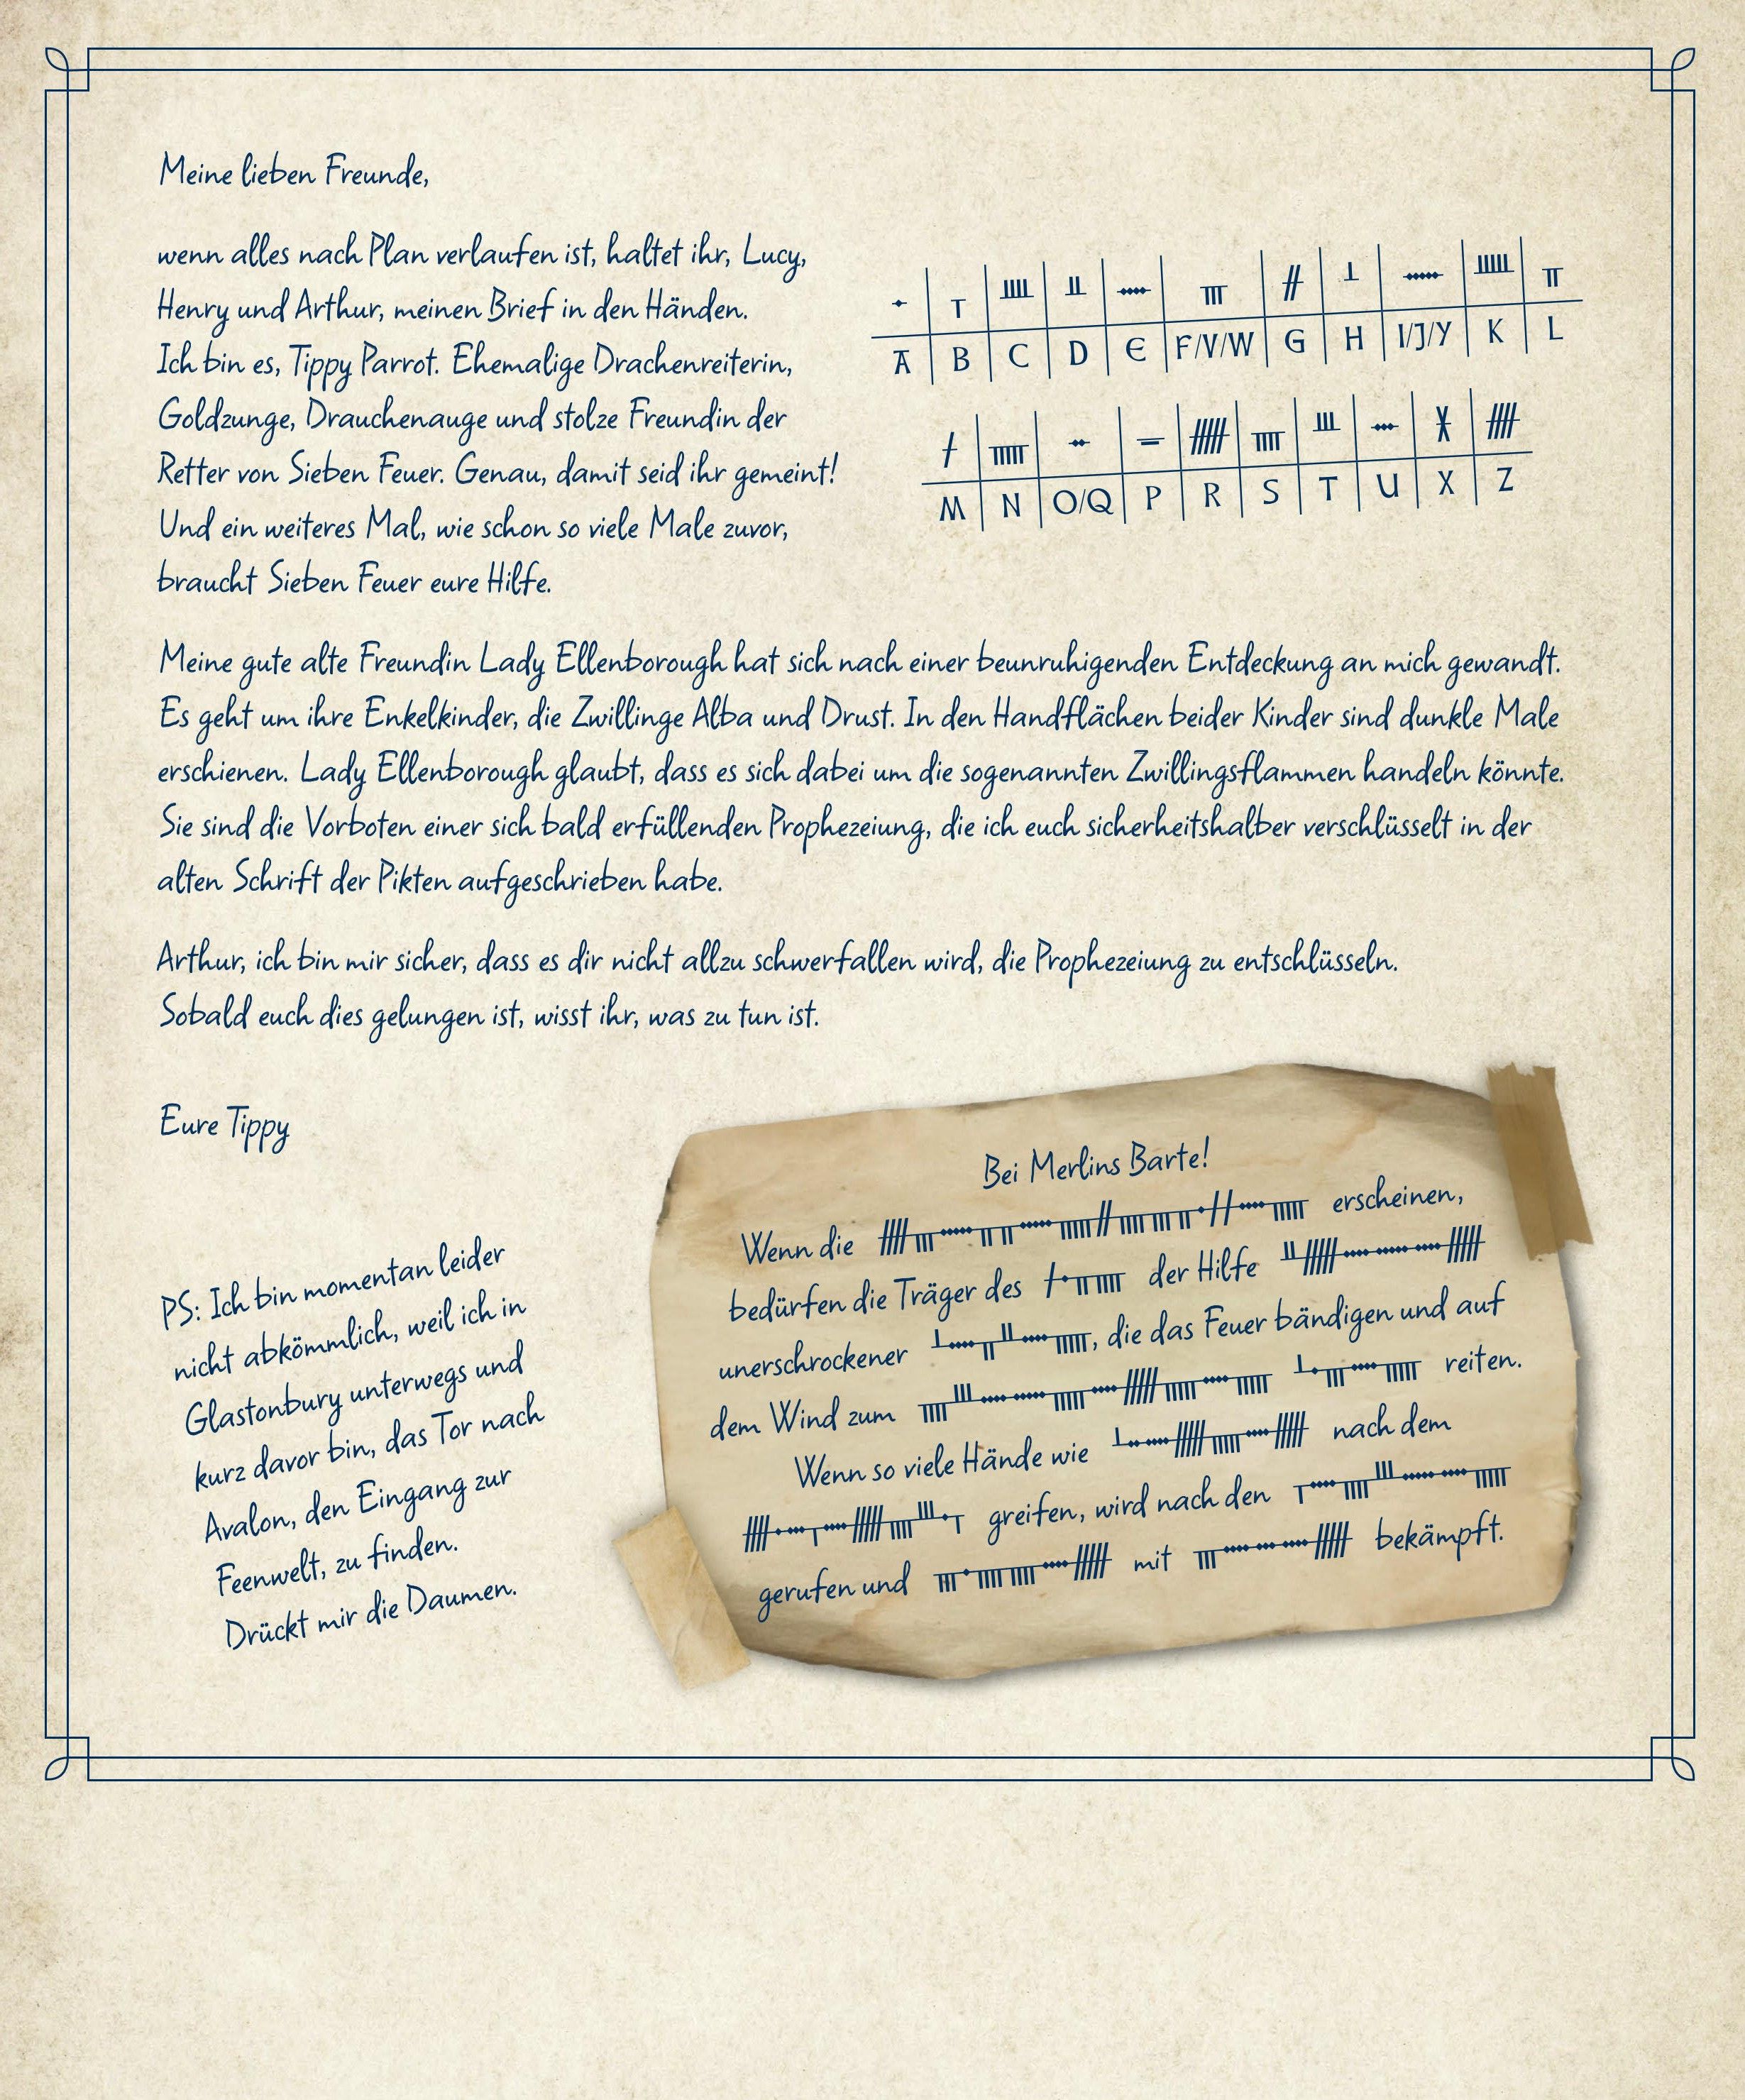 Meine lieben Freunde,
wenn alles nach Plan verlaufen ist, haltet ihr, Lucy,
Henry und Arthur, meinen Brief in den Händen.
Ich bin es, Tippy Parrot. Ehemalige Drachenreiterin,
Goldzunge, Drauchenauge und stolze Freundin der
Retter von Sieben Feuer. Genau, damit seid ihr gemeint!
Und ein weiteres Mal, wie schon so viele Male zuvor,
braucht Sieben Feuer eure Hilfe.
ᚐ ᚁ ᚉ ᚇ ᚓ ᚃ ᚌ ᚆ ᚔ ᚊ ᚂ
A B C D E F/V/W G H I/J/Y K L
ᚋ ᚅ ᚑ ᚚ ᚏ ᚄ ᚈ ᚒ ᚕ ᚎ
M N O/Q P R S T U X Z
Meine gute alte Freundin Lady Ellenborough hat sich nach einer beunruhigenden Entdeckung an mich gewandt.
Es geht um ihre Enkelkinder, die Zwillinge Alba und Drust. In den Handflächen beider Kinder sind dunkle Male
erschienen. Lady Ellenborough glaubt, dass es sich dabei um die sogenannten Zwillingsflammen handeln könnte.
Sie sind die Vorboten einer sich bald erfüllenden Prophezeiung, die ich euch sicherheitshalber verschlüsselt in der
alten Schrift der Pikten aufgeschrieben habe.
Arthur, ich bin mir sicher, dass es dir nicht allzu schwerfallen wird, die Prophezeiung zu entschlüsseln.
Sobald euch dies gelungen ist, wisst ihr, was zu tun ist.
Eure Tippy
PS: Ich bin momentan leider
nicht abkömmlich, weil ich in
Glastonbury unterwegs und
kurz davor bin, das Tor nach
Avalon, den Eingang zur
Feenwelt, zu finden.
Drückt mir die Daumen.
Bei Merlins Barte!
Wenn die ᚎᚃᚔᚂᚂᚔᚅᚌᚄᚃᚂᚐᚋᚋᚓᚅ erscheinen,
bedürfen die Träger des ᚋᚐᚂᚄ der Hilfe ᚇᚏᚓᚔᚓᚏ
unerschrockener ᚆᚓᚂᚇᚓᚅ, die das Feuer bändigen und auf
dem Wind zum ᚄᚈᚓᚔᚅᚓᚏᚅᚓᚅ ᚆᚐᚃᚓᚅ reiten.
Wenn so viele Hände wie ᚆᚑᚓᚏᚅᚓᚏ nach dem
ᚎᚐᚒᚁᚓᚏᚄᚈᚐᚁ greifen, wird nach den ᚁᚓᚄᚈᚔᚓᚅ
gerufen und ᚃᚐᚄᚄᚓᚏ mit ᚃᚓᚒᚓᚏ bekämpft.